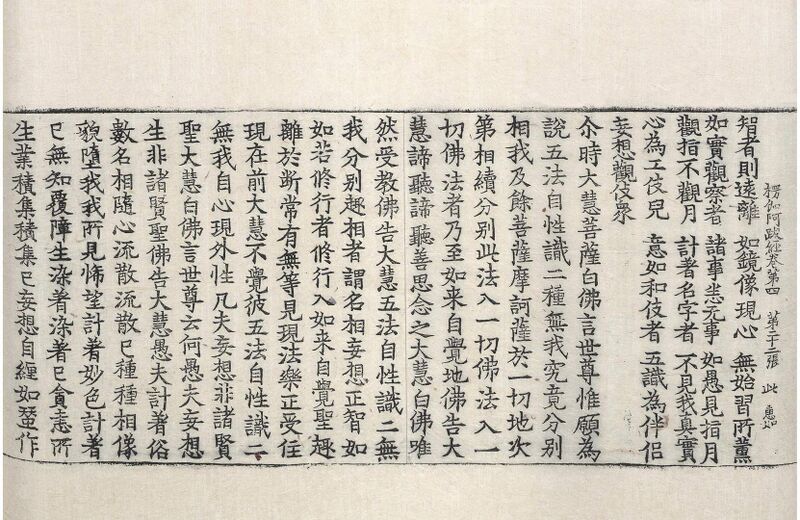 楞伽阿跋經卷第四 第二十二張 此
智者則遠離 如鏡像現心 無始習所薰
如實觀察者 諸事悉无事 如愚見指月
觀指不觀月 計著名字者 不見我真實
心為工伎兒 意如和伎者 五識為伴侶
妄想觀伎衆
尒時大慧菩薩白佛言世尊惟願為
說五法自性識二種無我究竟分別
相我及餘菩薩摩訶薩於一切地次
第相續分別此法入一切佛法入一
切佛法者乃至如來自覺地佛告大
慧諦聽諦聽善思念之大慧白佛唯
然受教佛告大慧五法自性識二無
我分別趣相者謂名相妄想正智如
如若修行者修行入如來自覺聖趣
離於斷常有無等見現法樂正受住
現在前大慧不覺彼五法自性識二
無我自心現外性凡夫妄想非諸賢
聖大慧白佛言世尊云何愚夫妄想
生非諸賢聖佛告大慧愚夫計著俗
數名相隨心流散流散已種種相像
貌墮我我所見悕望計著妙色計著
已無知覆障生染著染著已貪恚所
生業積集積集已妄想自纏如蚕作